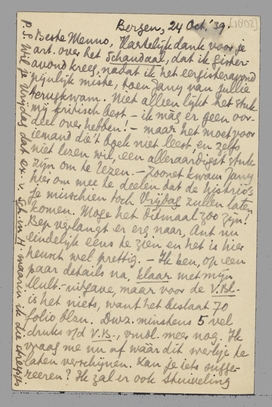 Bergen, 24 Oct. '39.
Beste Menno, Hartelijk dank voor je
art. over het Schandaal, dat ik gister-
avond kreeg, nadat ik het eergisteravond
pijnlijk miste, toen Jany van jullie
terugkwam. Niet alleen lijkt het stuk
mij kritisch best – ik mag er geen oor-
deel over hebben! – maar het moet voor
iemand die 't boek niet leest, en zelfs
niet lezen wil, een alleraardigst stuk
zijn om te lezen. – Zoonet kwam Jany
hier om mee te deelen dat de
je misschien toch Vrijdag zullen laten
komen. Moge het ditmaal zoo zijn!
Bep verlangt er erg naar, Ant nu
eindelijk eens te zien en het is hier
heusch wel prettig. – Ik ben, op een
paar details na, klaar met mijn
Mult.-uitgave, maar voor de V.Bl.
is het niets, want het beslaat 70
folio blzn. D.w.z. minstens 5 vel
druks v/d V.B., omdl. meer nog. Ik
vraag me nu af wáár dit werkje te
laten verschijnen. Kan je iets sugge-
reeren? Ik zal er ook Stuiveling
P.S. Wil je Vrijdag dat ex. v. Sch. in H. maarin ik die